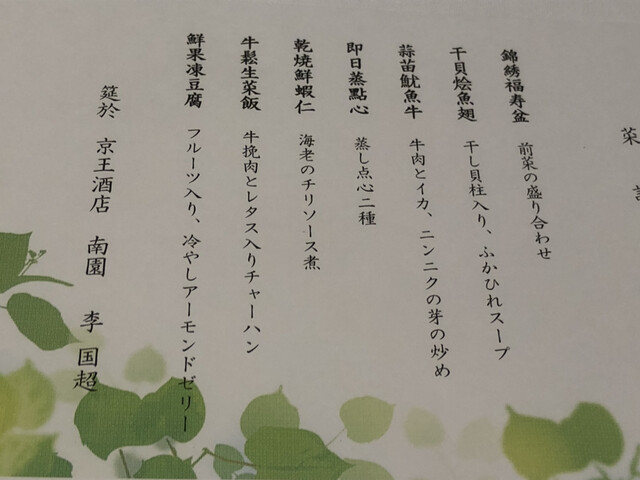 菜
錦綉福寿盆　前菜の盛り合わせ
干貝燴魚翅　干し貝柱入り、ふかひれスープ
蒜苗魷魚牛　牛肉とイカ、ニンニクの芽の炒め
即日蒸點心　蒸し点心二種
乾焼鮮蝦仁　海老のチリソース煮
牛鬆生菜飯　牛挽肉とレタス入りチャーハン
鮮果凍豆腐　フルーツ入り、冷やしアーモンドゼリー
筵於　京王酒店　南園　李　国超